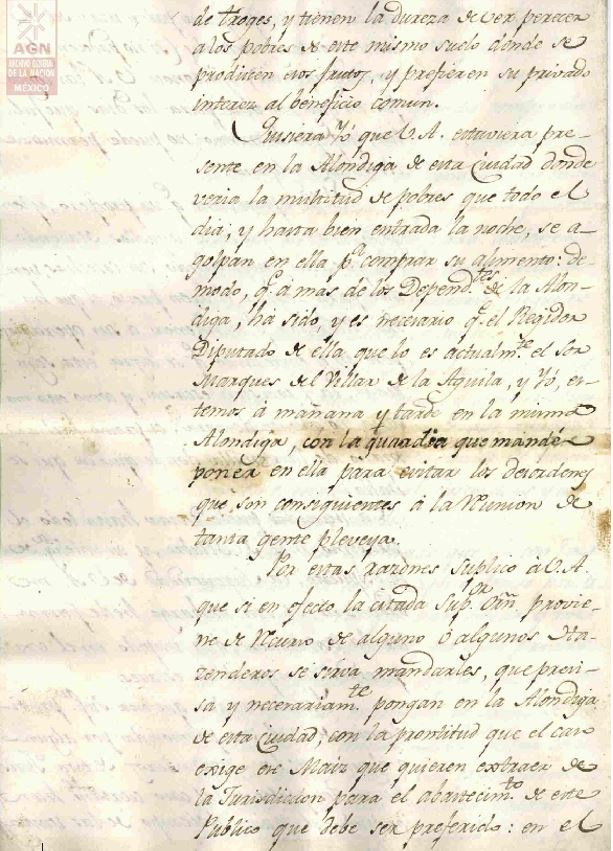 AGN
ARCHIVO GENERAL
DE LA NACION
MÉXICO
de troges, y tienen la dureza de ver perecer
a los pobres de este mismo suelo donde se
producen esos frutos, y prefieren su privado
interez al beneficio comun.
Quisiera Yó que V. A. estuviera pre-
sente en la Alondiga de esta Ciudad donde
veria la multitud de pobres que todo el
dia, y hasta bien entrada la noche, se a-
golpan en ella pa. comprar su alimento: de
modo, qe. a mas de los Dependtes. de la Alon-
diga, há sido, y es necesario qe. el Regidor
Diputado de ella que lo es actualmte. el Sor
Marques del Villar de la Aguila, y Yó, es-
temos á mañana y tarde en la misma
Alondiga, con la guardia que mandé
poner en ella para evitar los desordenes
que son consiguientes á la reunion de
tanta gente pleveya.
Por estas razones suplico a V. A.
que si en efecto la citada Supor. Orn. provie-
ne de recurso de alguno ó algunos Ha-
zenderos se sirva mandarles, que preci-
sa y necesariamte. pongan en la Alondiga
de esta Ciudad, con la prontitud que el caso
exige ese Maiz que quieren extraer de
la Jurisdicion para el abastecimto. de este
Publico que debe ser preferido: en el